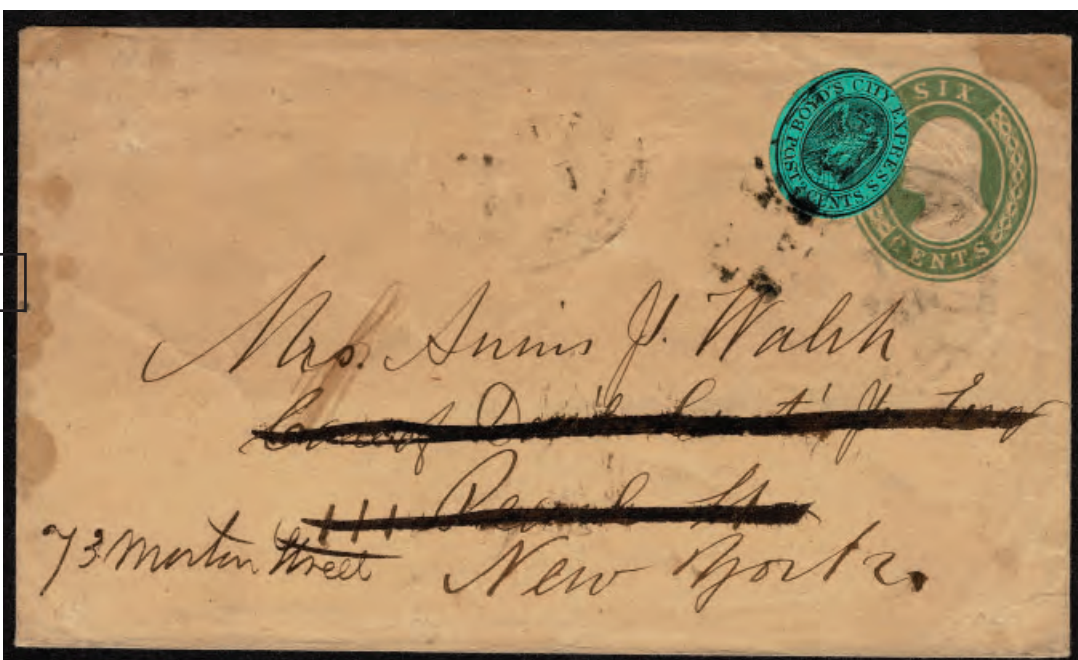 BOYD'S CITY EXPRESS
POST 2 CENTS
SIX
CENTS
Mrs. Annis J. Walsh
Care of
111 Pearl St
73 Morton Street
New York.